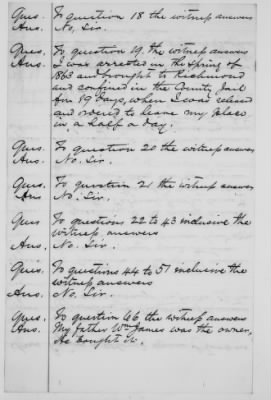 Ques. To question 18 the witness answers
Ans. No, Sir.
Ques. To question 19. the witness answers
Ans. I was arrested in the spring of
1863 and brought to Richmond
and confined in the County Jail
for 19 days, when I was released
and owed to leave my place
in a half a day.
Ques. To question 20 the witness answers
Ans. No. Sir.
Ques. To question 21 the witness answers
Ans No. Sir.
Ques To questions 22 to 43 inclusive the
witness answers
Ans. No. Sir.
Ques. To questions 44 to 51 inclusive the
witness answers
Ans. No. Sir.
Ques. To question 66 the witness answers
Ans. My father Wm James was the owner,
He bought it.